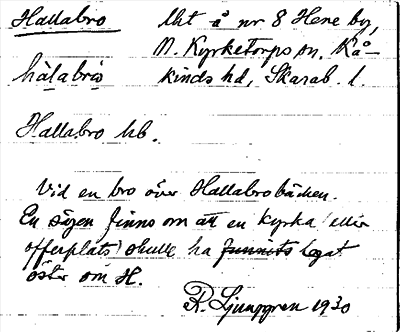 Hallabro Utt å nr 8 Hene by,
N. Kyrketorps sn. Kå-
hàlabrò kinds hd, Skarab. l.
Hallabro hb.
Vid en bro över Hallabrobäcken.
En sägen finns om att en kyrka (eller
offerplats) skulle ha funnits legat
öster om H.
R. Ljunggren 1930